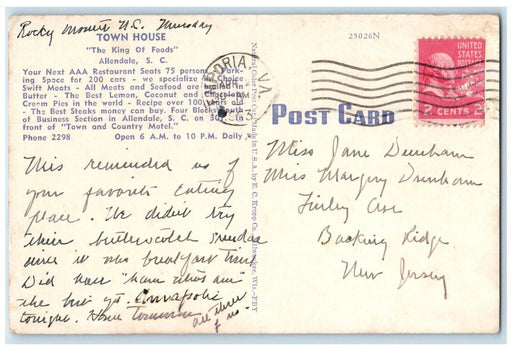 Rocky Mount N.C. Thursday
TOWN HOUSE
"The King Of Foods"
Allendale, S. C.
Your Next AAA Restaurant Seats 75 persons Park-
ing Space for 200 cars - we specialize in Choice
Swift Meats - All Meats and Seafood are
Butter - The Best Lemon, Coconut and Chocolate
Cream Pies in the world - Recipe over 100 years old
- The Best Steaks money can buy. Four Blocks South
of Business Section in Allendale, S. C. on 301 In
front of "Town and Country Motel."
Phone 2298 Open 6 A.M. to 10 P.M. Daily
25026N
EMPORIA, VA.
UNITED
STATES
POSTAGE
2 CENTS 2
POST CARD
This reminded us of
your favorite eating
place. We didn't try
their butterscotch sundae
since it was breakfast time
Did have "ham what am"
the but
tonight. Home Tomorrow
all three
of us.
Miss Jane Dunham
Miss Margery Dunham
Finley Ave
Basking Ridge
New Jersey
Natural Color Post Card Made in U.S.A. by E. C. Kropp Co., Milwaukee, Wis.-FBY